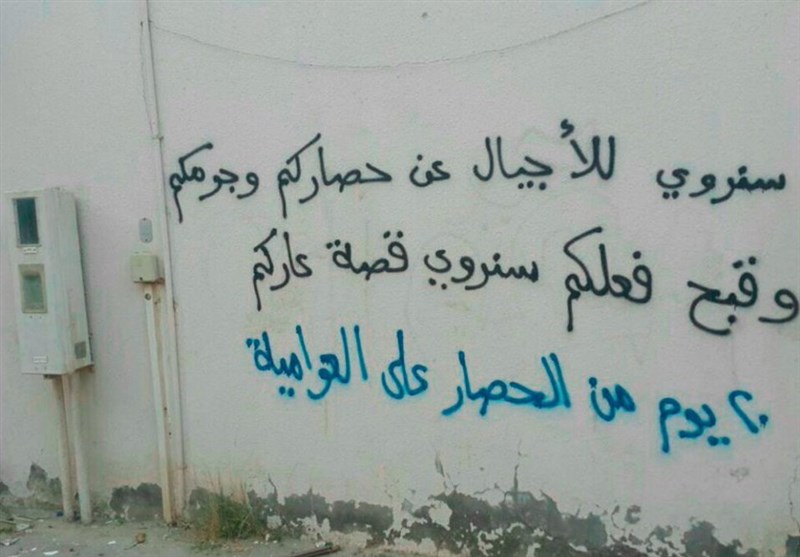 سنروي للأجيال عن حصاركم وجرمكم
وقبح فعلكم سنروي قصة عاركم
٢٠ يوم من الحصار على العوامية